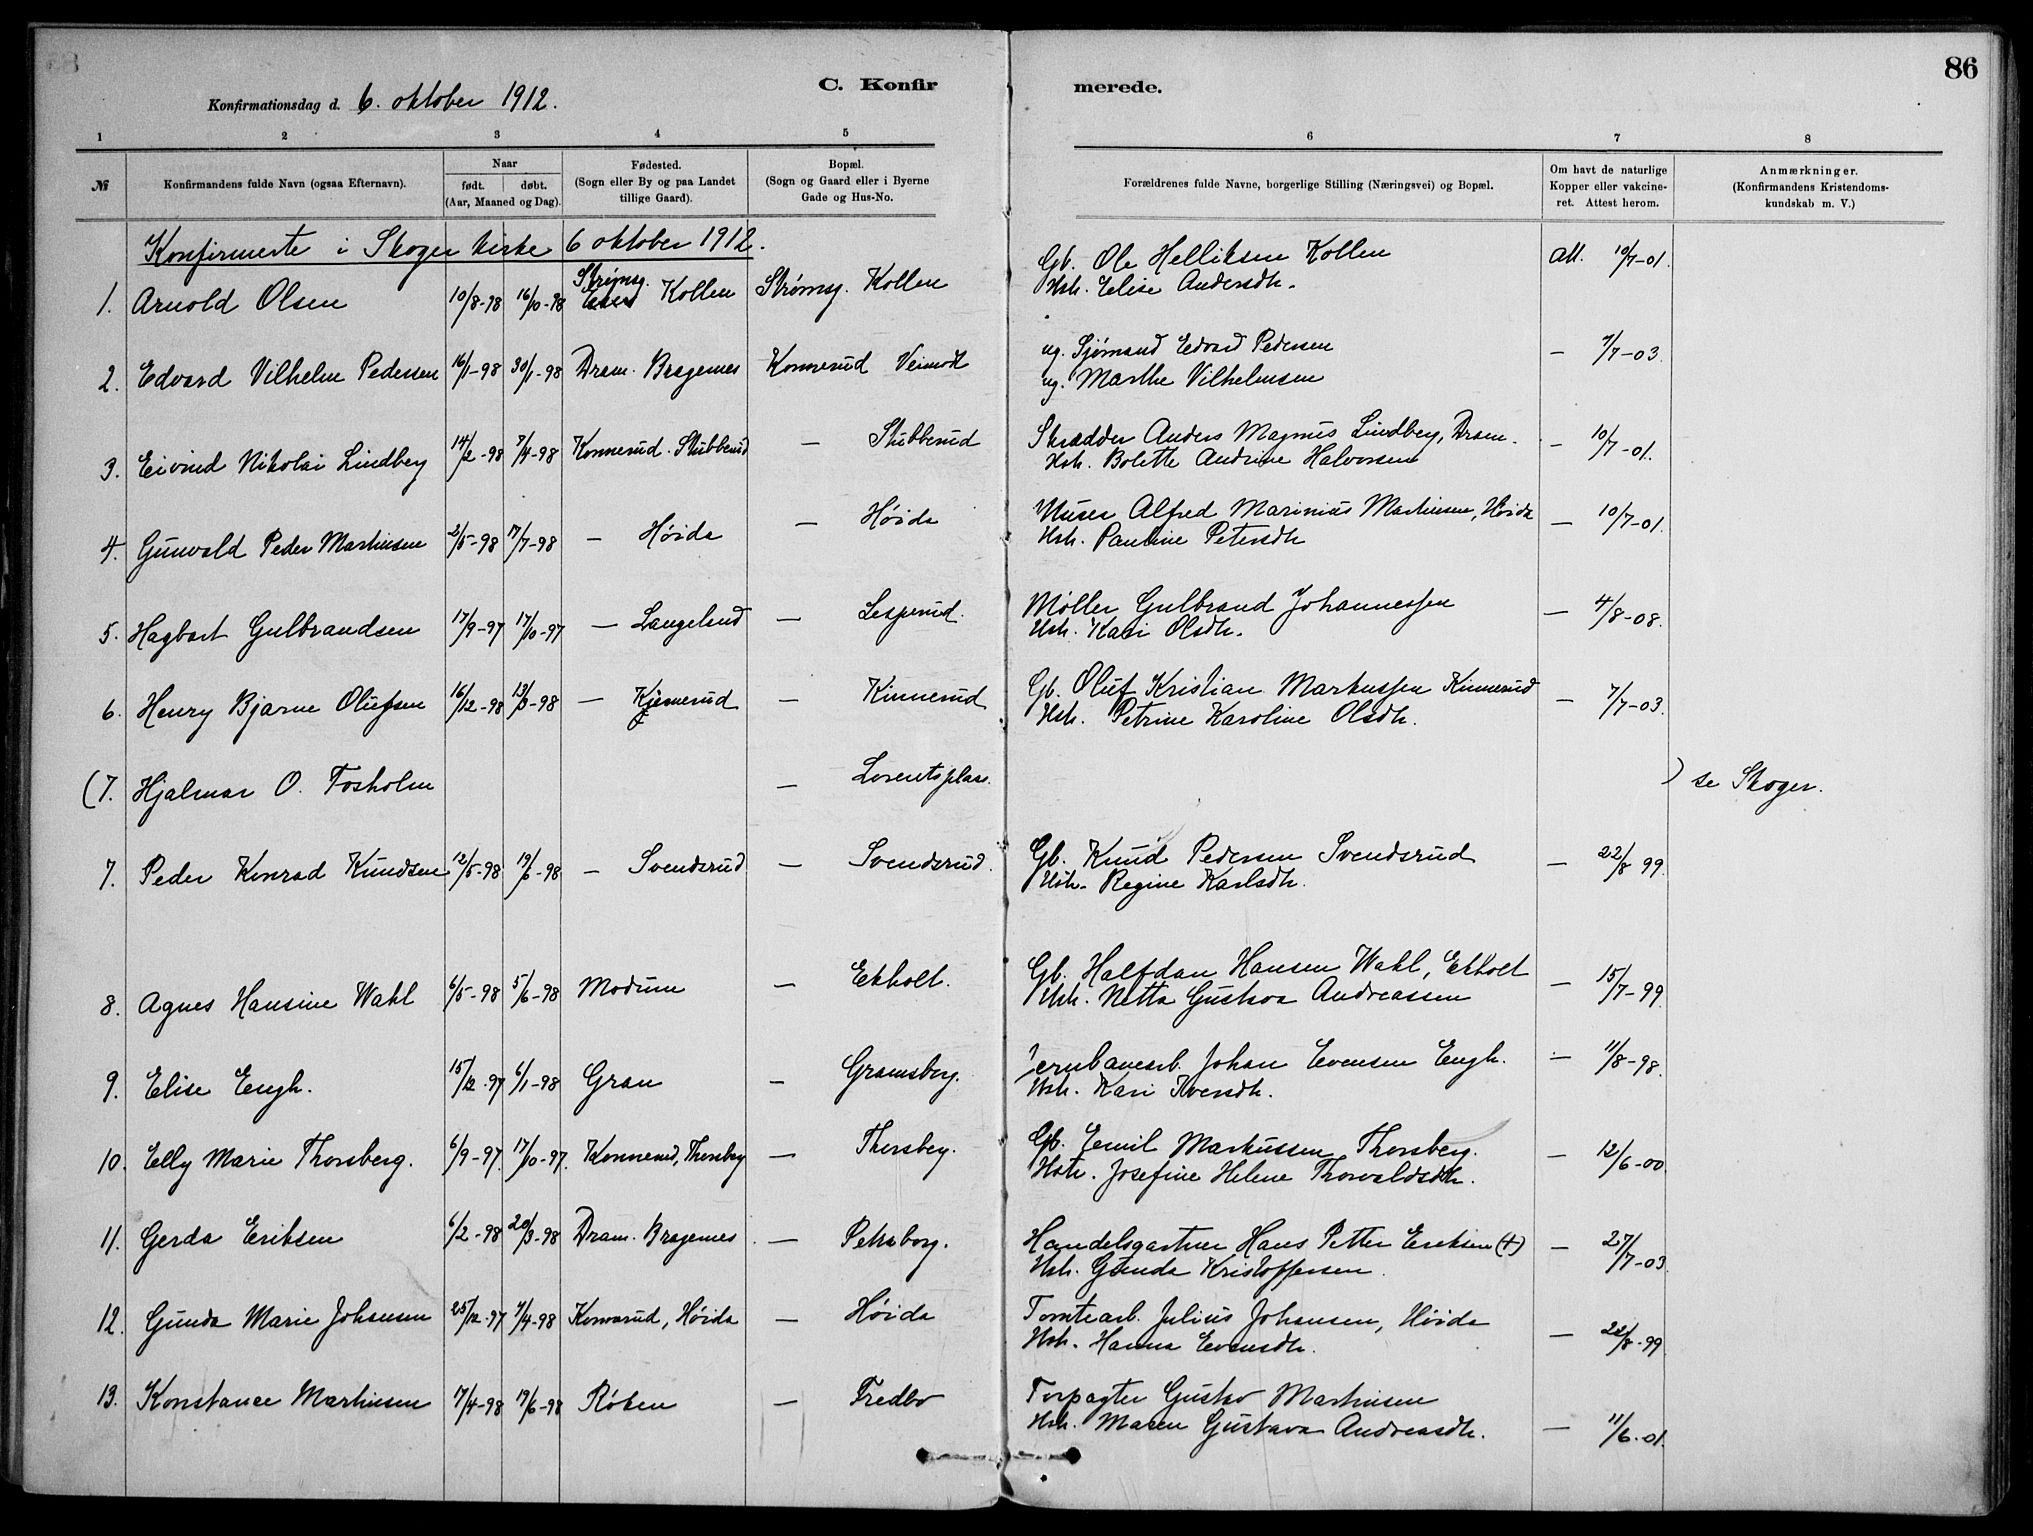 86
C. Konfir merede.
Konfirmationsdag d. 6. oktober 1912.
1 2 3 4 5 6 7 8
№ Konfirmandens fulde Navn (ogsaa Efternavn). Naar født. døbt. (Aar, Maaned og Dag). Fødested. (Sogn eller By og paa Landet tillige Gaard). Bopæl. (Sogn og Gaard eller i Byerne Gade og Hus-No. Forældrenes fulde Navne, borgerlige Stilling (Næringsvei) og Bopæl. Om havt de naturlige Kopper eller vakcineret. Attest herom. Anmærkninger. (Konfirmandens Kristendomskundskab m. V.)
Konfirmerte i Skoger kirke 6 oktober 1912.
1. Arnold Olsen 10/8-98 16/10-98 Strømsg. Kollen Strømsg. Kollen Gb. Ole Helliksen Kollen att. 10/7-01.
Hstr. Elise Andersdtr.
2. Edvard Vilhelm Pedersen 16/1-98 30/1-98 Dram. Bragernes Konnerud ug. Sjømand Edvard Pedersen — 7/7-03.
ug. Marthe Vilhelmsen
3. Eivind Nikolai Lindberg 14/2-98 7/4-98 Konnerud. Stubberud — Stubberud Skrædder Anders Magnus Lindberg, Dram. — 10/7-01.
Hstr. Bolette Andrine Halvorsen
4. Gunvald Peder Martinsen 2/5-98 17/7-98 — Høida — Høida Murer Alfred Marinius Martinsen, Høida — 10/7-01.
Hstr. Pauline Petersdtr
5. Hagbart Gulbrandsen 17/9-97 17/10-97 — Langelund — Lesperud. Møller Gulbrand Johannessen — 4/8-08.
Hstr. Kari Olsdtr.
6. Henry Bjarne Olufsen 16/12-98 13/3-98 — — Kinnerud Gb. Oluf Kristian Markussen Kinnerud — 7/7-03.
Hstr. Petrine Karoline Olsdtr.
(7. Hjalmar O. Fosholm — Lorentsplas. ) se Skoger.
7. Peder Konrad Knudsen 12/5-98 19/6-98 — Svendsrud — Svendsrud. Gb. Knud Pedersen Svendsrud — 22/8 99.
Hstr. Regine Karlsdtr.
8. Agnes Hansine Wahl 6/5-98 5/6-98 Modum — Ekholt. Gb. Halfdan Hansen Wahl, Ekholt — 15/7-99.
Hstr. Netta Gustava Andreassen
9. Elise Engh. 15/12-97 6/1-98 Gran — Gramsberg. Jernbanearb. Johan Evensen Engh. — 11/8-98.
Hstr. Kari Iversdtr.
10. Elly Marie Thorsberg. 6/9-97. 17/10-97. Konnerud, Thorsberg — Thorsberg. Gb. Emil Markussen Thorsberg. — 12/6-00.
Hstr. Josefine Helene Thorvaldsdtr.
11. Gerda Eriksen 6/2-98 20/3-98 Dram. Bragernes — Petersborg. Handelsgartner Hans Petter Eriksen (+) — 27/7-03
Hstr. Gunda Kristoffersen.
12. Gunda Marie Johansen 25/12-97 7/4-98 Konnerud, Høida — Høida Tomtearb. Julius Johansen, Høida — 22/8-99
Hstr. Hanna Evensdtr.
13. Konstance Martinsen 17/4-98 19/6-98 Røken — Fredbo Forpagter Gustav Martinsen — 11/6-01.
Hstr. Maren Gustava Andreasdtr.